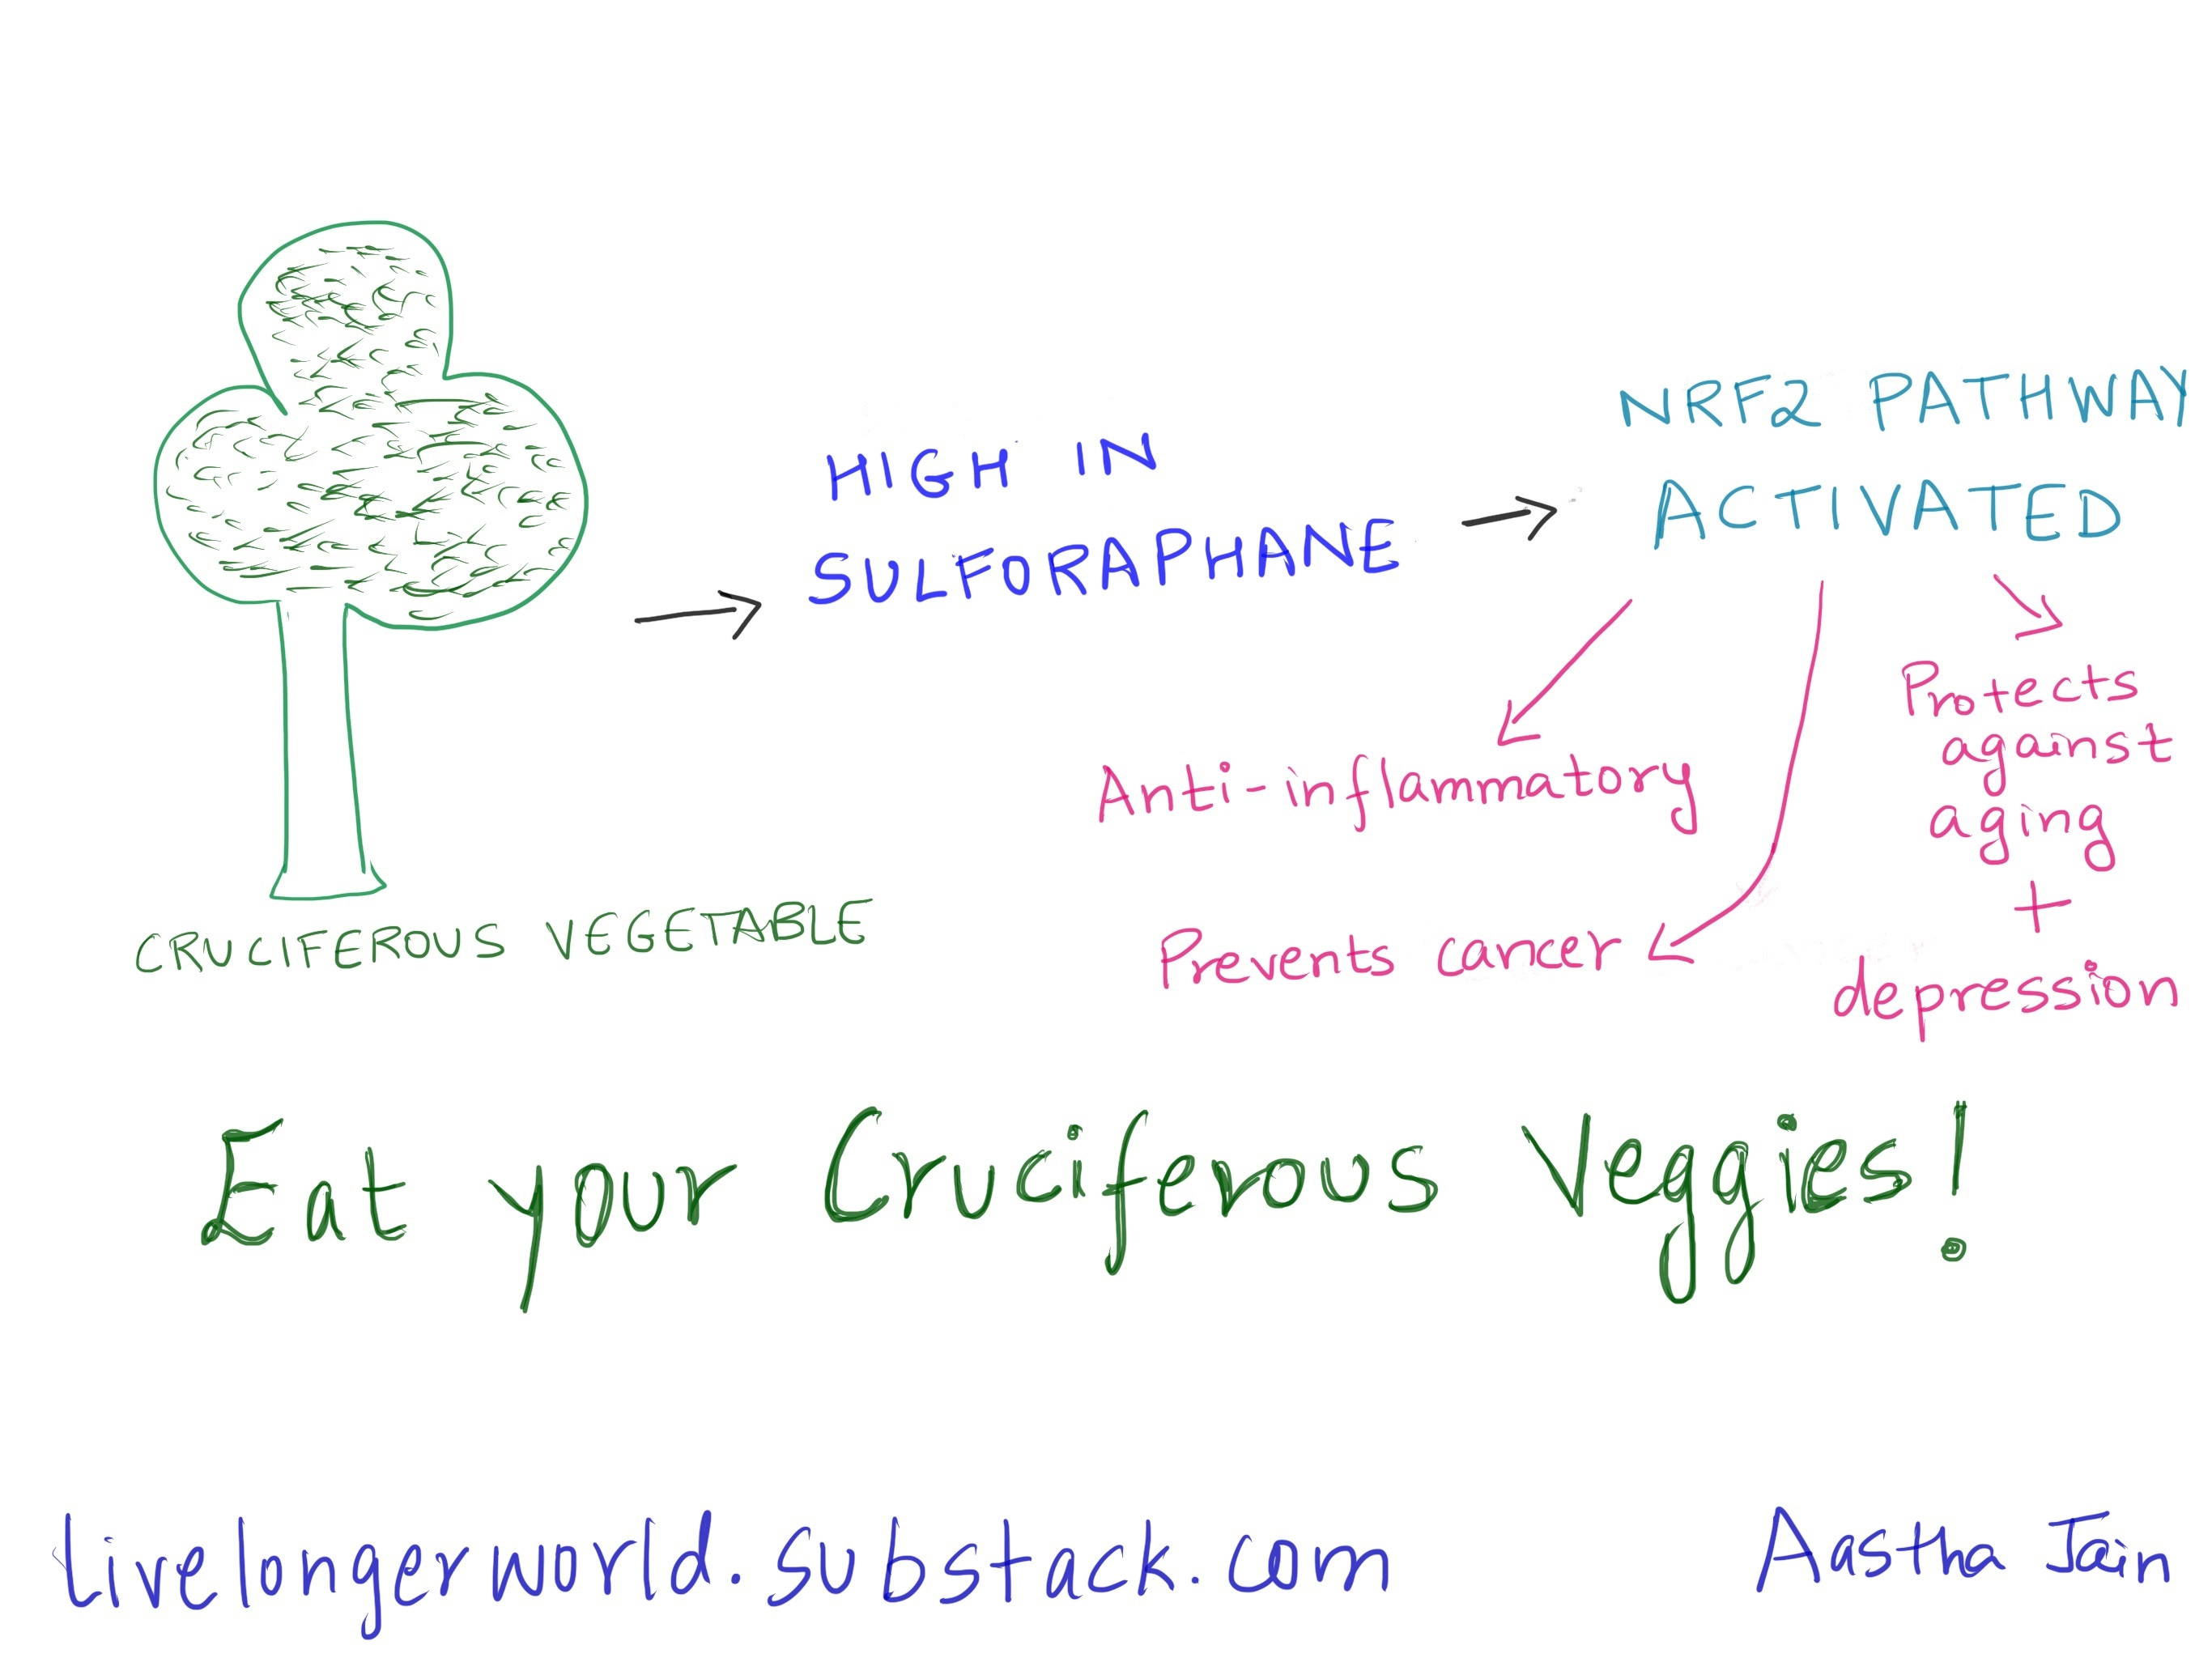 HIGH IN
SULFORAPHANE
NRF2 PATHWAY
ACTIVATED
Anti-inflammatory
Prevents cancer
Protects
against
aging
+
depression
CRUCIFEROUS VEGETABLE
Eat your Cruciferous Veggies!
livelongerworld.substack.com
Aastha Jain